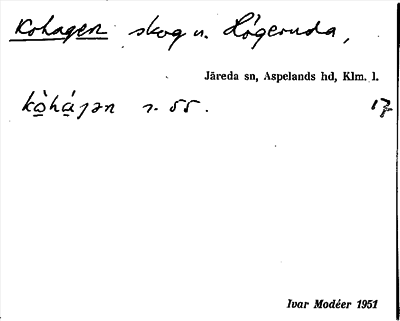 Kohagen skog u. Högeruda,
Järeda sn, Aspelands hd, Klm. l.
kòhá̱ɡən s. 55. 17
Ivar Modéer 1951